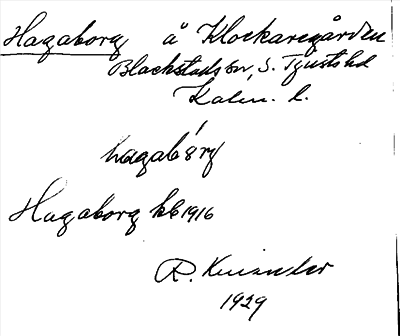 Hagaborg å Klockaregården
Blackstads sn, S. Tjusts hd
Kalm. l.
hagabórg
Hagaborg kb 1916
R.
1929